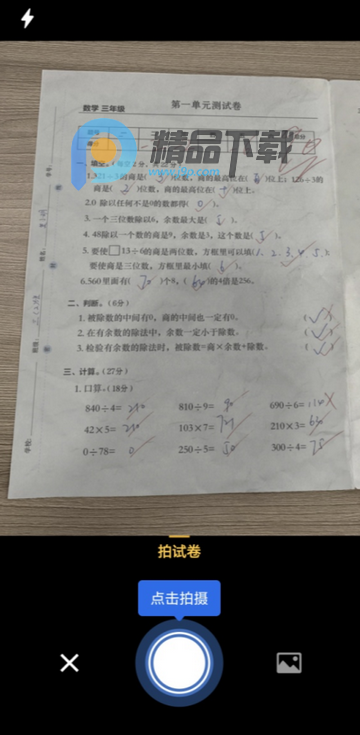 数学 三年级 第一单元测试卷
精品下载
一、填空。
位数，商的最高位在( )位上；128÷3的
商是( 2 )位数，商的最高位在( )位上。
2.0 除以任何不是0的数都得( 0 )。
3. 一个三位数除以6，余数最大是( 5 )。
4. 48除以一个数的商是9，余数是3，这个数是( 5 )。
5. 要使□13÷6的商是两位数，方框里可以填(1、2、3、4、5、),
要使商是三位数，方框里最小填( 6 )。
6.560里面有( 70 )个8，( 64 )的4倍是256。
二、判断。(6分)
1. 被除数的中间有0，商的中间也一定有0。
2. 在有余数的除法中，余数一定小于除数。
3. 检验有余数的除法时，被除数=商×余数+除数。
三、计算。(27分)
1. 口算。(18分)
840÷4= 210 810÷9= 90 690÷6= 110
42×5= 210 103×7= 721 210×3= 630
0÷78= 0 250÷5= 50 300÷4= 75
拍试卷
点击拍摄